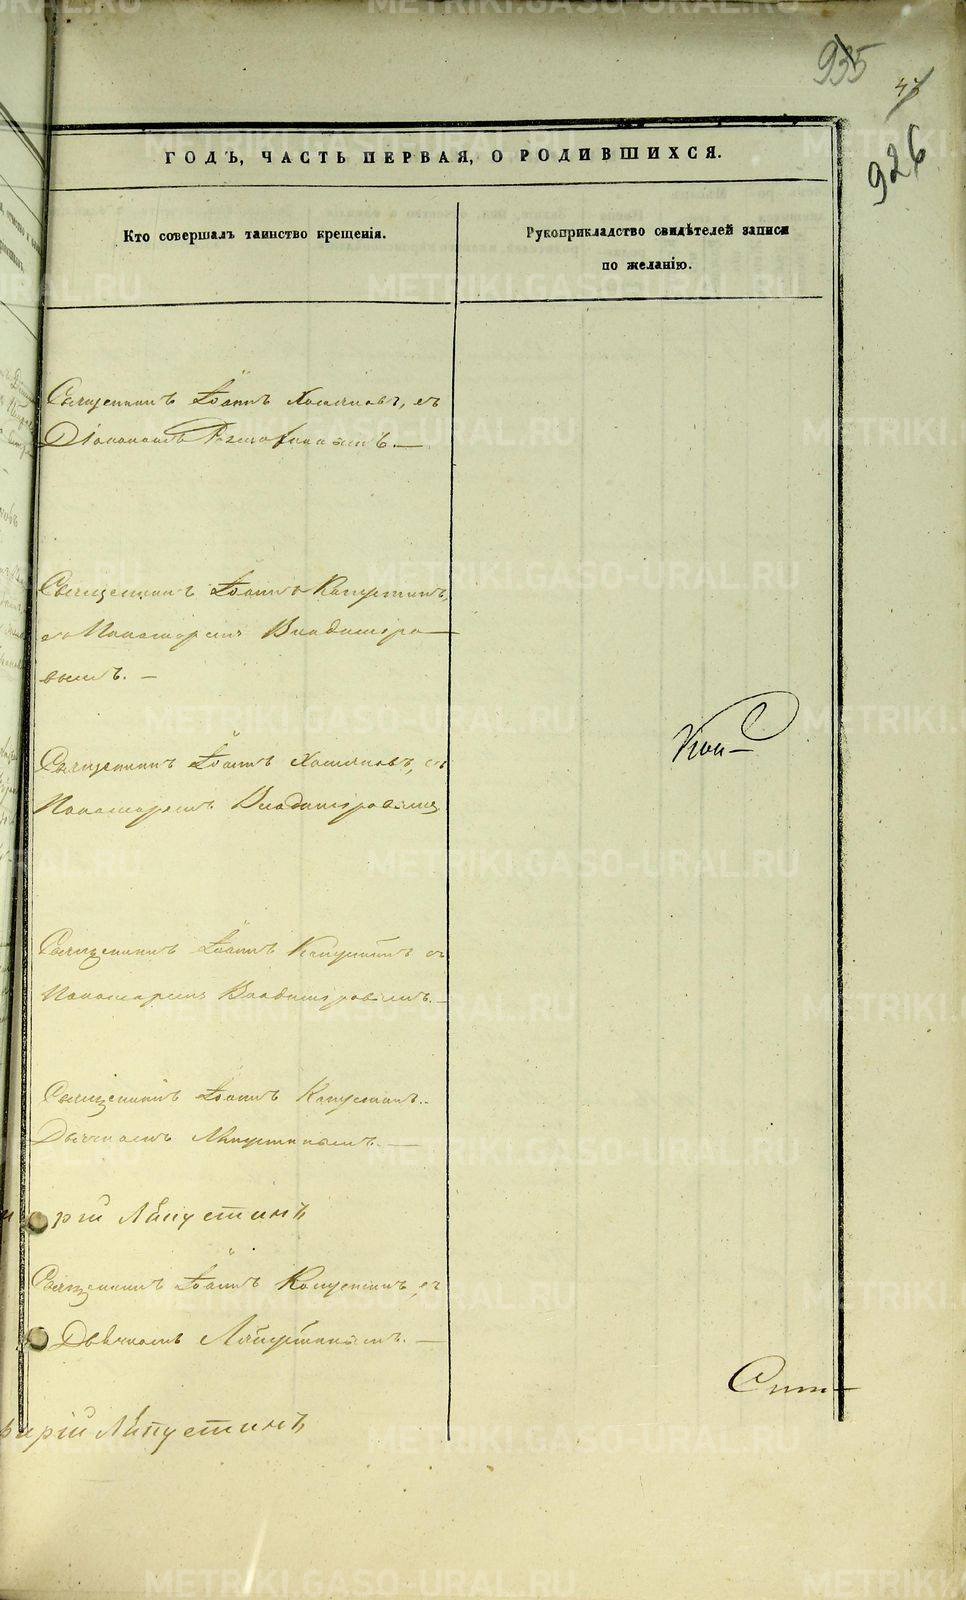 926
ГОДЪ, ЧАСТЬ ПЕРВАЯ, О РОДИВШИХСЯ.
Кто совершалъ таинство крещенія.
Рукоприкладство свидѣтелей записи
по желанію.
Священникъ Іоаннъ Хомяковъ, съ
Діакономъ
Священникъ Іоаннъ Капустинъ,
съ Пономаремъ Владиміро-
вымъ. —
Священникъ Іоаннъ Хомяковъ, съ
Пономаремъ Владиміровымъ
Священникъ Іоаннъ Капустинъ съ
Пономаремъ Владиміровымъ. —
Священникъ Іоаннъ Капустинъ..
Дьячкомъ Ляпустинымъ. —
рій Ляпустинъ
Священникъ Іоаннъ Капустинъ, съ
Дьячкомъ Ляпустинымъ. —
рій Ляпустинъ
METRIKI.GASO-URAL.RU